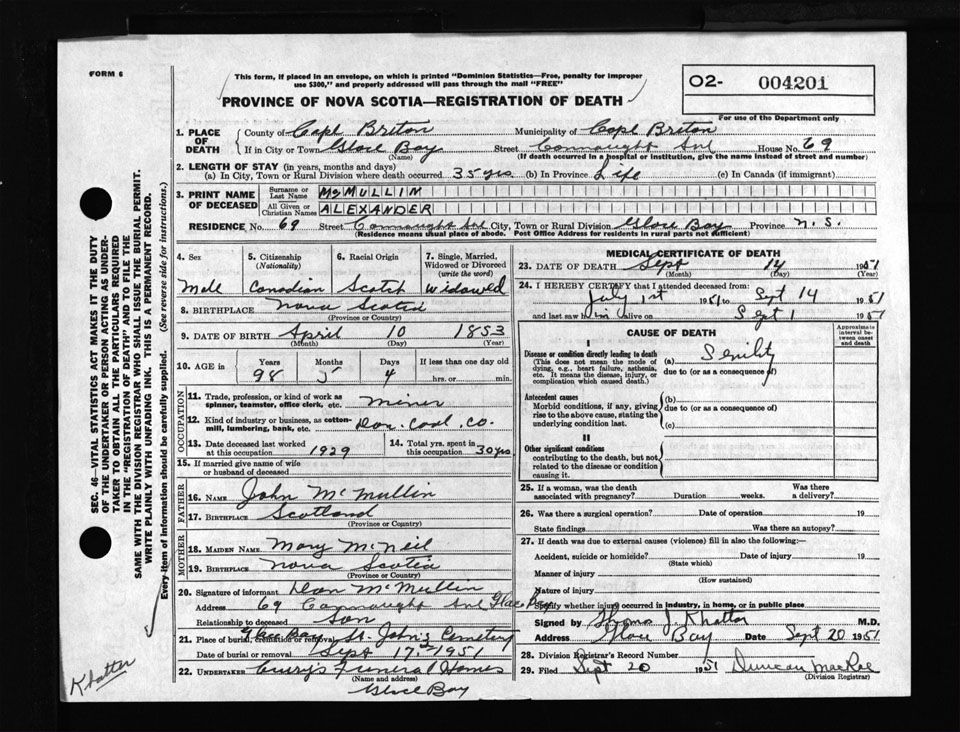 FORM 6
This form, if placed in an envelope, on which is printed "Dominion Statistics—Free, penalty for improper
use $300," and properly addressed will pass through the mail "FREE"
PROVINCE OF NOVA SCOTIA—REGISTRATION OF DEATH
O2- 004201
For use of the Department only
1. PLACE OF DEATH { County of Cape Breton Municipality of Cape Breton
If in City or Town Glace Bay Street Connaught Ave House No. 69
(Name) (If death occurred in a hospital or institution, give the name instead of street and number)
2. LENGTH OF STAY (in years, months and days)
(a) In City, Town or Rural Division where death occurred 35 yrs (b) In Province Life (c) In Canada (if immigrant)
3. PRINT NAME OF DECEASED { Surname or Last Name McMULLIN
All Given or Christian Names ALEXANDER
RESIDENCE No. 69 Street Connaught Ave City, Town or Rural Division Glace Bay Province N.S.
(Residence means usual place of abode. Post Office Address for residents in rural parts not sufficient)
4. Sex 5. Citizenship (Nationality) 6. Racial Origin 7. Single, Married, Widowed or Divorced (write the word)
Male Canadian Scotch Widowed
8. BIRTHPLACE Nova Scotia
(Province or Country)
9. DATE OF BIRTH April 10 1853
(Month) (Day) (Year)
10. AGE in { Years Months Days If less than one day old
98 5 4 hrs. or min.
OCCUPATION
11. Trade, profession, or kind of work as spinner, teamster, office clerk, etc. miner
12. Kind of industry or business, as cotton-mill, lumbering, bank, etc. Dom. Coal Co.
13. Date deceased last worked at this occupation 1929 14. Total yrs. spent in this occupation 30 yrs
15. If married give name of wife or husband of deceased
FATHER
16. NAME John McMullin
17. BIRTHPLACE Scotland
(Province or Country)
MOTHER
18. MAIDEN NAME Mary McNeil
19. BIRTHPLACE Nova Scotia
(Province or Country)
20. Signature of informant Dan McMullin
Address 69 Connaught Ave Glace Bay
Relationship to deceased Son
21. Place of burial, cremation or removal Glace Bay St. John's Cemetery
Date of burial or removal Sept 17th 1951
22. UNDERTAKER Curry's Funeral Homes
(Name and address)
Glace Bay
MEDICAL CERTIFICATE OF DEATH
23. DATE OF DEATH Sept 14 1951
(Month) (Day) (Year)
24. I HEREBY CERTIFY that I attended deceased from:
July 1st 1951 to Sept 14 1951
and last saw him alive on Sept 1 1951
CAUSE OF DEATH
Approximate interval between onset and death
I
Disease or condition directly leading to death
(This does not mean the mode of dying, e.g., heart failure, asthenia, etc. It means the disease, injury, or complication which caused death.)
(a) Senility
due to (or as a consequence of)
Antecedent causes
Morbid conditions, if any, giving rise to the above cause, stating the underlying condition last.
(b)
due to (or as a consequence of)
(c)
II
Other significant conditions
contributing to the death, but not related to the disease or condition causing it.
25. If a woman, was the death associated with pregnancy? Duration weeks. Was there a delivery?
26. Was there a surgical operation? Date of operation 19
State findings Was there an autopsy?
27. If death was due to external causes (violence) fill in also the following:—
Accident, suicide or homicide? Date of injury 19
(State which)
Manner of injury
(How sustained)
Specify whether injury occurred in industry, in home, or in public place
Signed by Thomas J. Khattar M.D.
Address Glace Bay Date Sept 20 1951
28. Division Registrar's Record Number
29. Filed Sept 20 1951 Duncan MacRae
(Division Registrar)
SEC. 46—VITAL STATISTICS ACT MAKES IT THE DUTY
OF THE UNDERTAKER OR PERSON ACTING AS UNDER-
TAKER TO OBTAIN ALL THE PARTICULARS REQUIRED
IN THE "REGISTRATION OF DEATH" AND TO FILE THE
SAME WITH THE DIVISION REGISTRAR WHO SHALL ISSUE THE BURIAL PERMIT.
WRITE PLAINLY WITH UNFADING INK. THIS IS A PERMANENT RECORD.
Every item of information should be carefully supplied. (See reverse side for instructions.)
Khattar